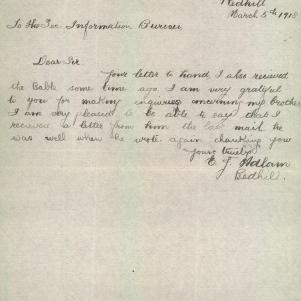 Redhill
March 5th 1918
To the Sec Information Bureau
Dear Sir
Your letter to hand, I also recieved
the Cable some time ago. I am very grateful
to you for making inquiries concerning my brother
I am very pleased to be able to say that I
recieved a letter from him the last mail. he
was well when he wrote. again thanking you
yours truly
E. J. Adlam
Redhill.